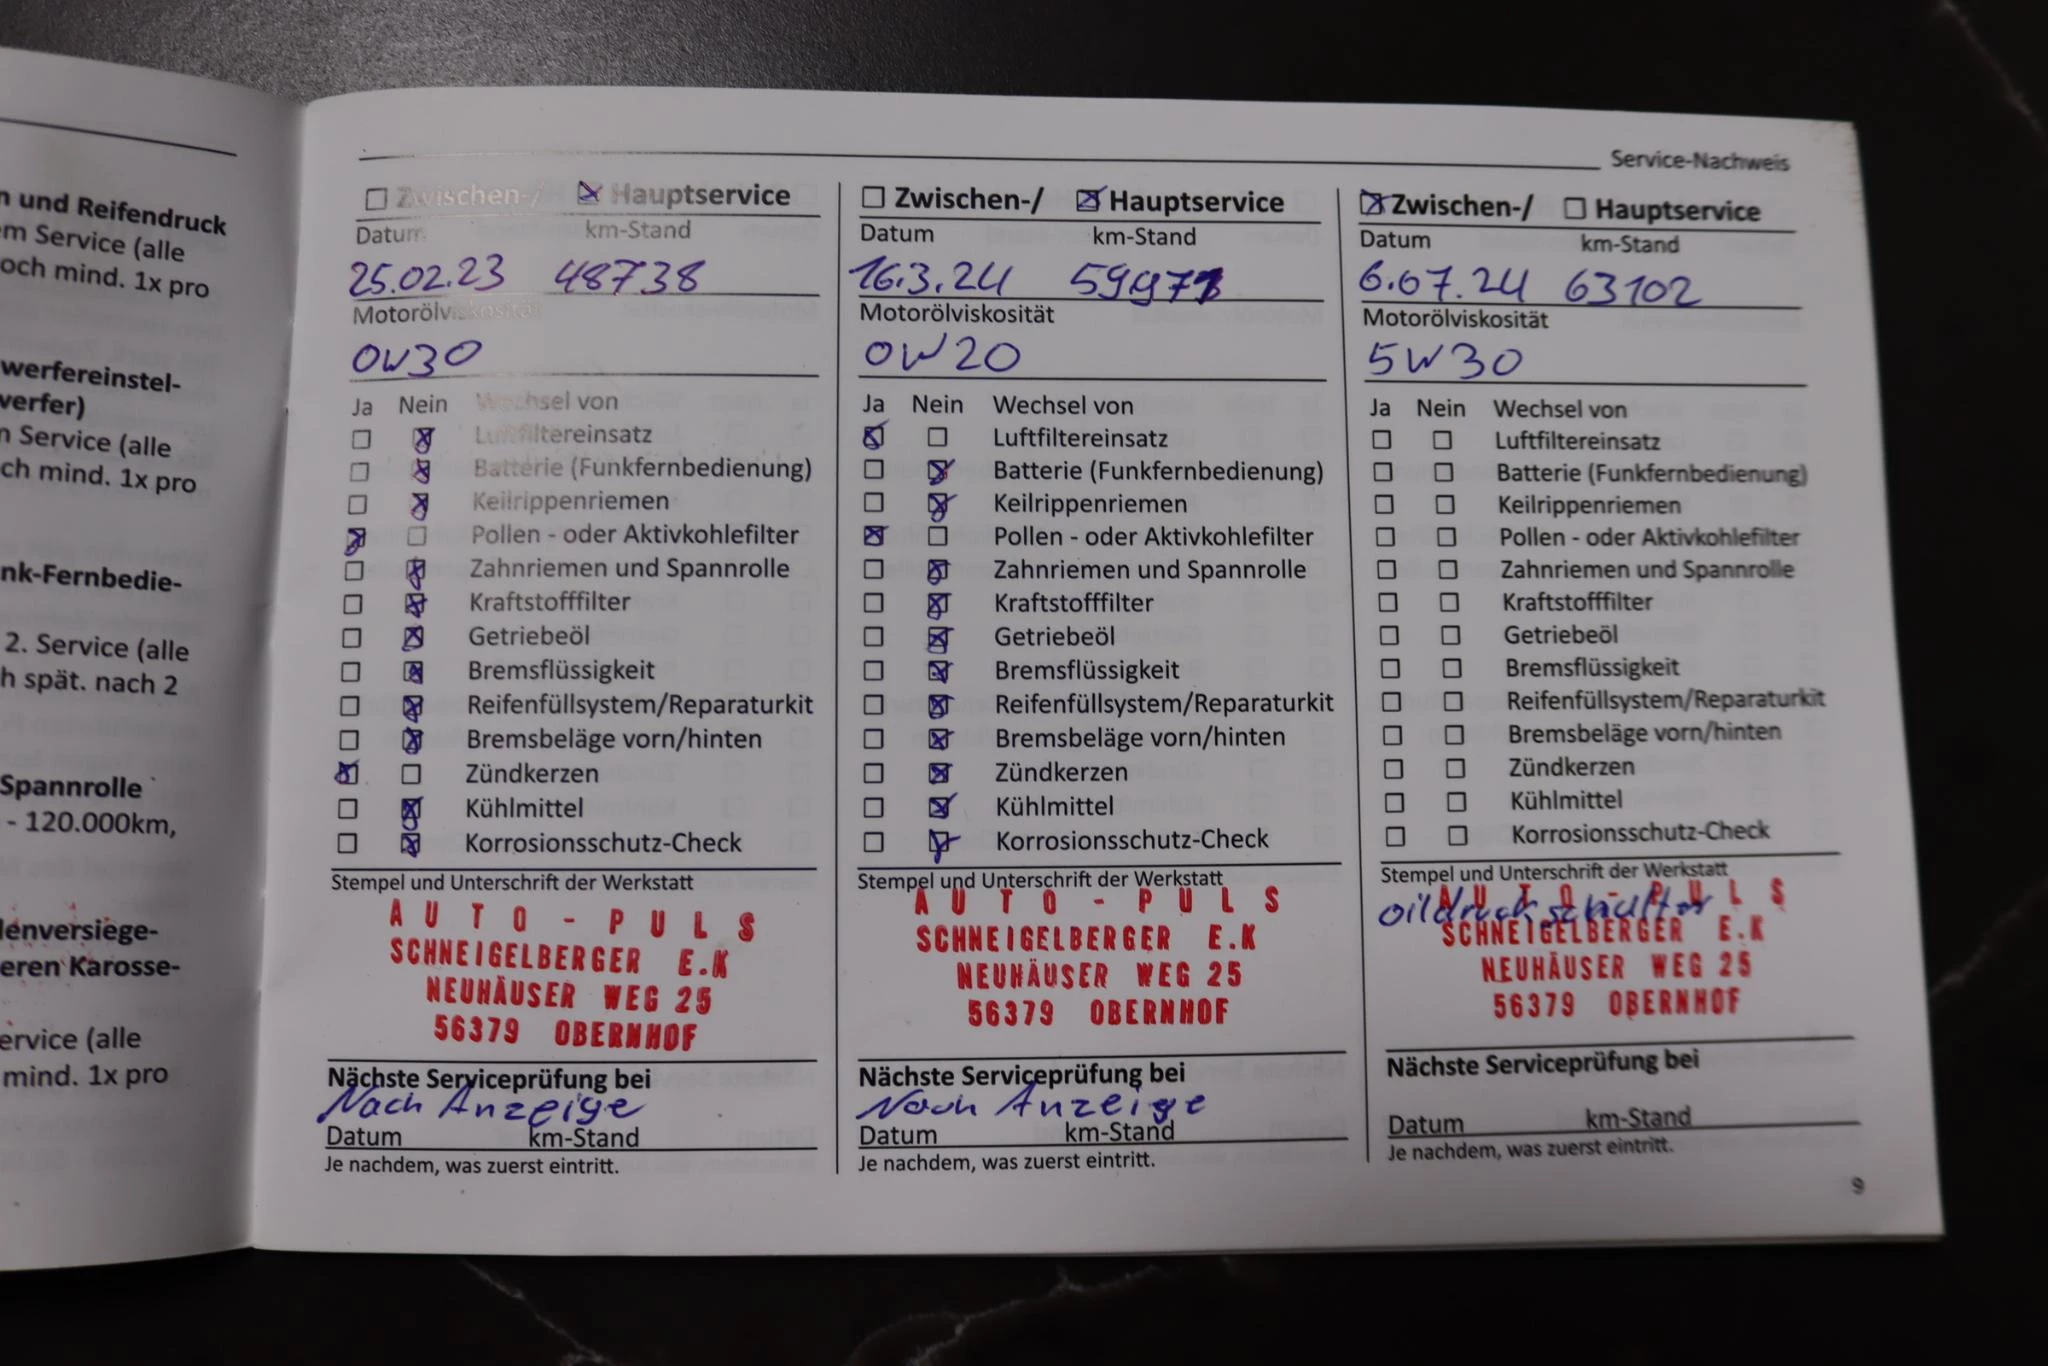 n und Reifendruck
m Service (alle
och mind. 1x pro
werfereinstel-
verfer)
n Service (alle
ch mind. 1x pro
nk-Fernbedie-
2. Service (alle
h spät. nach 2
Spannrolle
- 120.000km,
lenversiege-
eren Karosse-
ervice (alle
mind. 1x pro
Service-Nachweis
☐ Zwischen-/ ☒ Hauptservice
Datum km-Stand
25.02.23 48738
Motorölviskosität
0W30
Ja Nein Wechsel von
☐ ☒ Luftfiltereinsatz
☐ ☒ Batterie (Funkfernbedienung)
☐ ☒ Keilrippenriemen
☒ ☐ Pollen - oder Aktivkohlefilter
☐ ☒ Zahnriemen und Spannrolle
☐ ☒ Kraftstofffilter
☐ ☒ Getriebeöl
☐ ☒ Bremsflüssigkeit
☐ ☒ Reifenfüllsystem/Reparaturkit
☐ ☒ Bremsbeläge vorn/hinten
☒ ☐ Zündkerzen
☐ ☒ Kühlmittel
☐ ☒ Korrosionsschutz-Check
Stempel und Unterschrift der Werkstatt
AUTO - PULS
SCHNEIGELBERGER E.K
NEUHÄUSER WEG 25
56379 OBERNHOF
Nächste Serviceprüfung bei
Nach Anzeige
Datum km-Stand
Je nachdem, was zuerst eintritt.
☐ Zwischen-/ ☒ Hauptservice
Datum km-Stand
16.3.24
Motorölviskosität
0W20
Ja Nein Wechsel von
☒ ☐ Luftfiltereinsatz
☐ ☒ Batterie (Funkfernbedienung)
☐ ☒ Keilrippenriemen
☒ ☐ Pollen - oder Aktivkohlefilter
☐ ☒ Zahnriemen und Spannrolle
☐ ☒ Kraftstofffilter
☐ ☒ Getriebeöl
☐ ☒ Bremsflüssigkeit
☐ ☒ Reifenfüllsystem/Reparaturkit
☐ ☒ Bremsbeläge vorn/hinten
☐ ☒ Zündkerzen
☐ ☒ Kühlmittel
☐ ☒ Korrosionsschutz-Check
Stempel und Unterschrift der Werkstatt
AUTO - PULS
SCHNEIGELBERGER E.K
NEUHÄUSER WEG 25
56379 OBERNHOF
Nächste Serviceprüfung bei
Nach Anzeige
Datum km-Stand
Je nachdem, was zuerst eintritt.
☒ Zwischen-/ ☐ Hauptservice
Datum km-Stand
6.07.24 63102
Motorölviskosität
5W30
Ja Nein Wechsel von
☐ ☐ Luftfiltereinsatz
☐ ☐ Batterie (Funkfernbedienung)
☐ ☐ Keilrippenriemen
☐ ☐ Pollen - oder Aktivkohlefilter
☐ ☐ Zahnriemen und Spannrolle
☐ ☐ Kraftstofffilter
☐ ☐ Getriebeöl
☐ ☐ Bremsflüssigkeit
☐ ☐ Reifenfüllsystem/Reparaturkit
☐ ☐ Bremsbeläge vorn/hinten
☐ ☐ Zündkerzen
☐ ☐ Kühlmittel
☐ ☐ Korrosionsschutz-Check
Stempel und Unterschrift der Werkstatt
AUTO - PULS
oildruck schalter
SCHNEIGELBERGER E.K
NEUHÄUSER WEG 25
56379 OBERNHOF
Nächste Serviceprüfung bei
Datum km-Stand
Je nachdem, was zuerst eintritt.
9